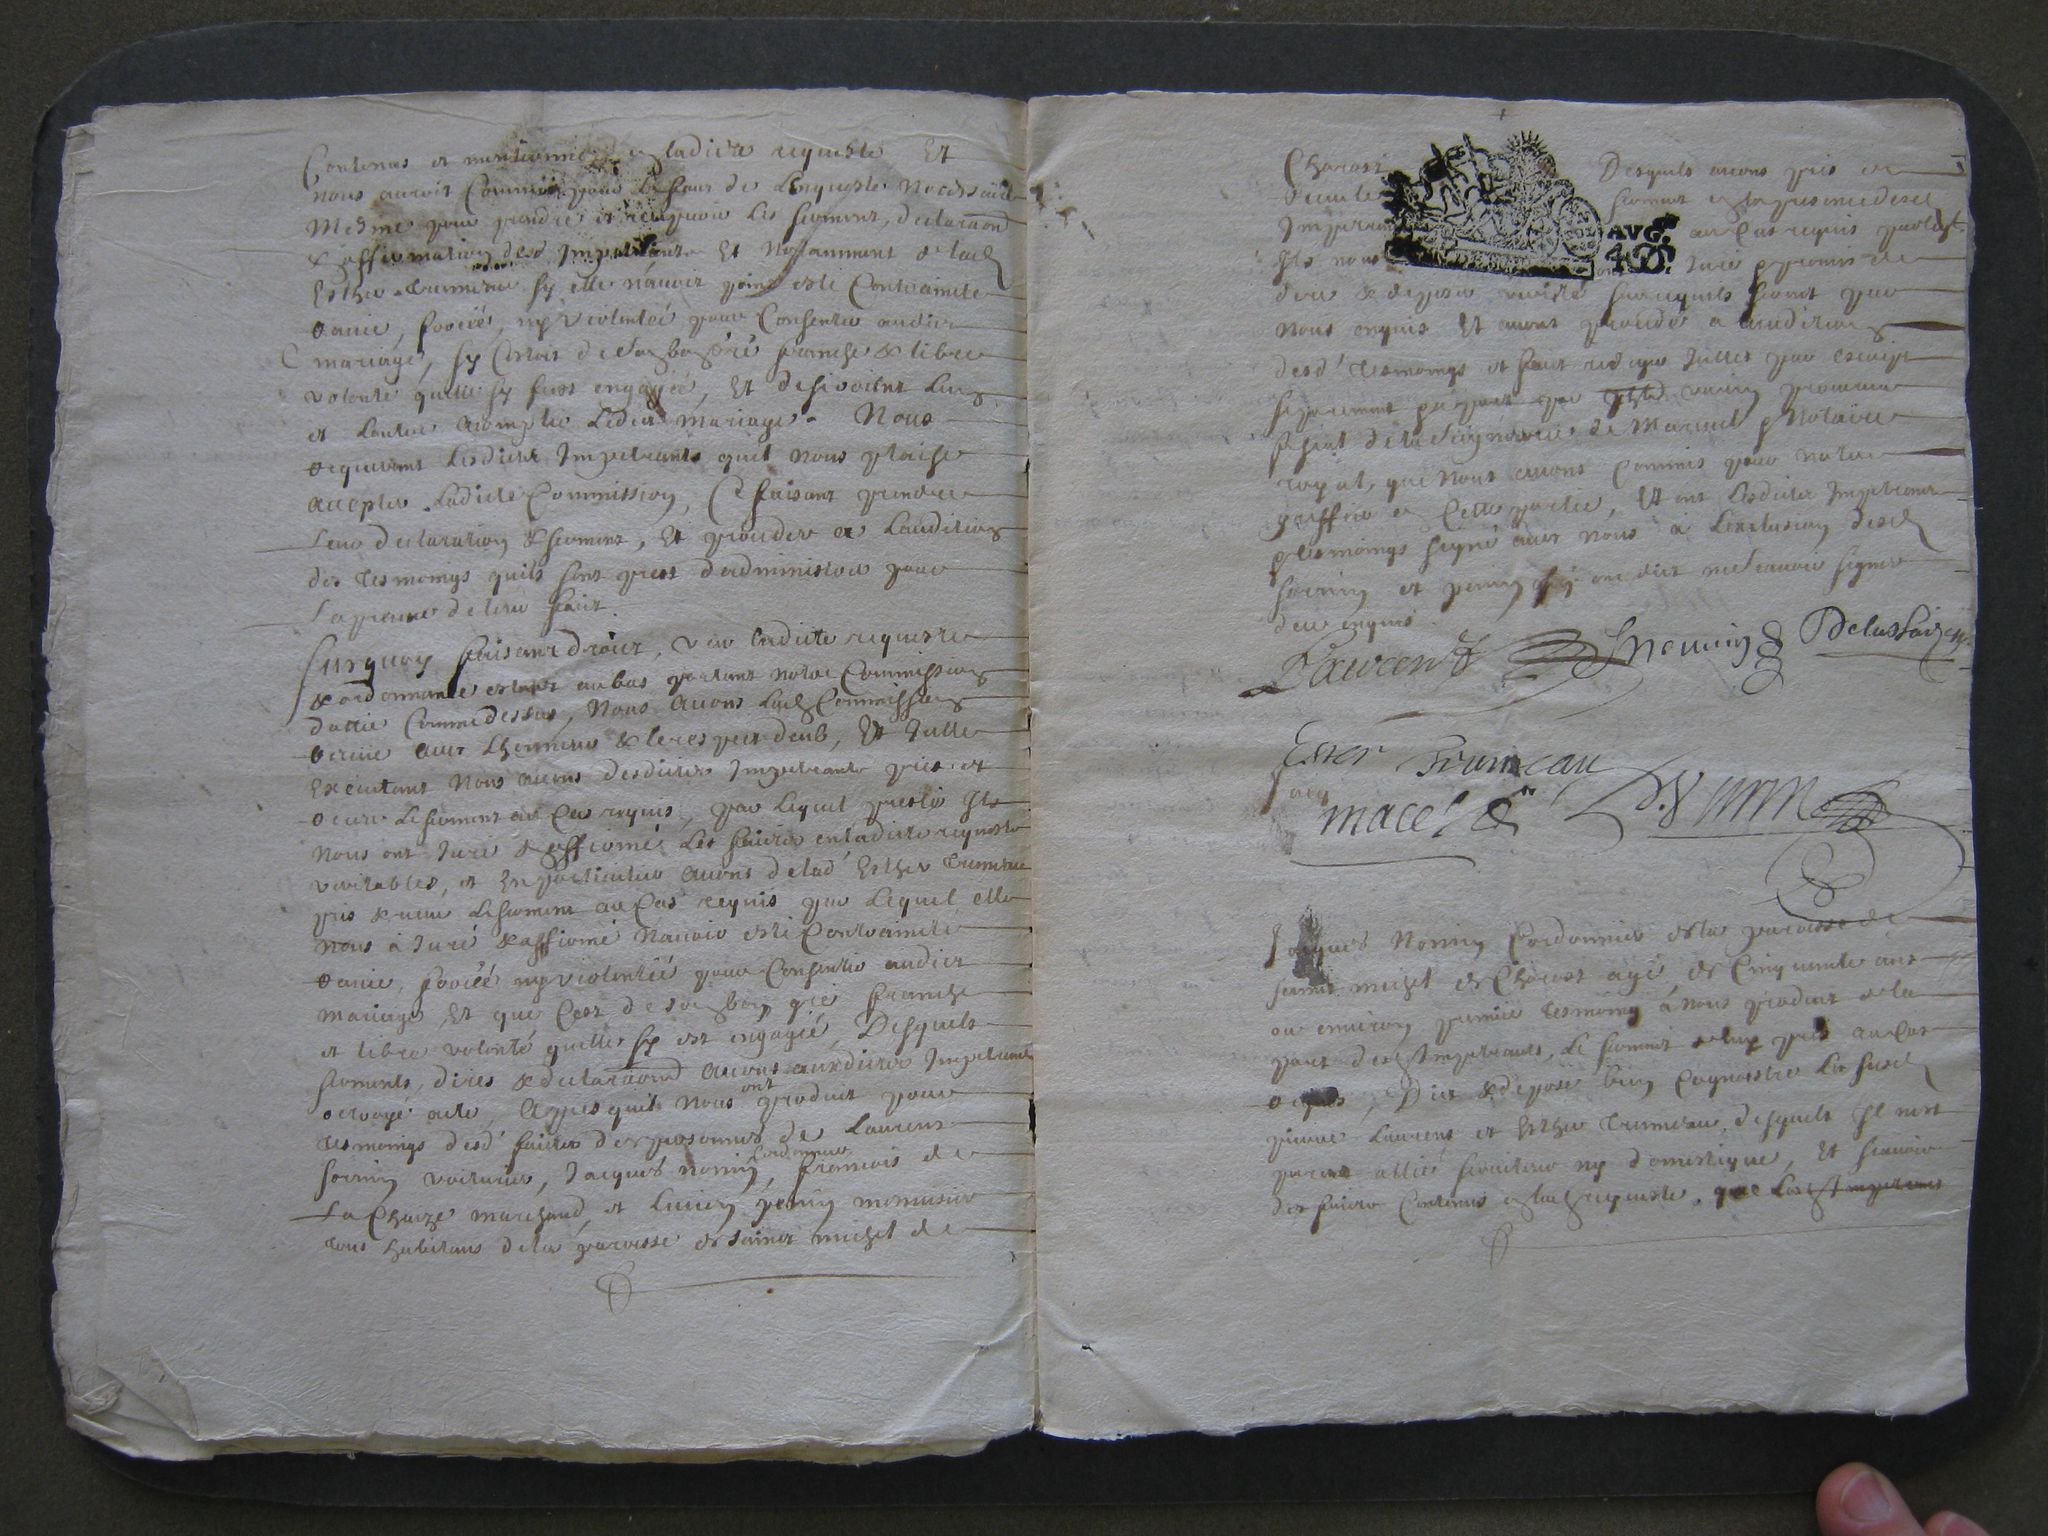 Contenus et mentionnez en ladicte requeste Et
nous auroit Commis pour le faict de Lenqueste Necessaire
Mesme pour prendre et recepuoir les serment, declaraon
& affirmation desd Impetrants Et Notamment de lad
Esther Trumeau sy elle n'auoit point esté Contrainte
rauie, forcée, ny Violentée pour Consentir audict
mariage, sy C'estoit de son bon gré franche & libre
volonté quelle sy fust engagée, Et desiroient Lung
et Lautre acomplir Ledict mariage. Nous
requerant Lesdicts Impetrants quil nous plaise
accepter Ladicte Commission, Ce faisant prendre
Leur declaration & serment, Et proceder a Laudition
des tesmoings quils sont prest d'administrer pour
La preuue de leur faict
Surquoy faisant droict, veu Ladicte requeste
& ordonnance estant au bas portant notre Commission
dattée Comme dessus, Nous auons Lad Commission
receue auec Lhonneur & le respect deub, Et Icelle
Executant Nous auons desdicts Impetrants pris et
receu Le serment au Cas requis, par Lequel presté Ils
Nous ont Juré & affirmé Les faicts en ladicte requeste
veritables, et En particulier auons de lad Esther Trumeau
pris & receu Le serment au Cas requis par Lequel elle
Nous à Juré & affirmé N'auoir esté Contrainte
rauie, forcée ny violentée pour Consentir audict
mariage Et que C'est de son bon gré franche
et libre volonté quelle sy est engagée, Desquels
serments, dires & declaraons auons auxdicts Impetrants
octroyé acte, Apres quoy Nous ont produit pour
tesmoings desd faicts des personnes de Laurent
sorin voicturier, Jacques nonin Cordonnier, francois de
La Chaize marchand, et Lucien penin menuisier
tous habitans de la paroisse de Sainct michel de
Charost Desquels auons pris et
receu le serment en la presence desd
Impetrants au Cas requis par lequel
Ils nous ont Juré & promis de
dire & deposer verité sur ce quils seront par
Nous enquis Et auons procedé a laudition
desd tesmoings et faict rediger Icelle par escript
separement par varin procureur
fiscal de la Seigneurie de Mareuil & Notaire
royal, que nous auons Commis pour notre
greffier en Cette partie, Et ont Lesdicts Impetrants
& tesmoings signé auec nous à Lexclusion desd
sorin et penin qui ont dict ne scauoir signer
de ce enquis
P Laurent J nonnin Delachaize
Ester Trumeau
macé
Jacques Nonin Cordonnier de la paroisse de
sainct michel de Charost agé de Cinquante ans
ou enuiron premier tesmoing à nous produit de la
part desd Impetrants, Le serment de luy pris au Cas
requis, Dict & depose bien Cognoistre Les susd
pierre Laurent et Esther Trumeau, desquels Il nest
parent allié seruiteur ny domestique, Et scauoir
des faicts Contenus en lad requeste, que Lesd Impetrants
AVG.on